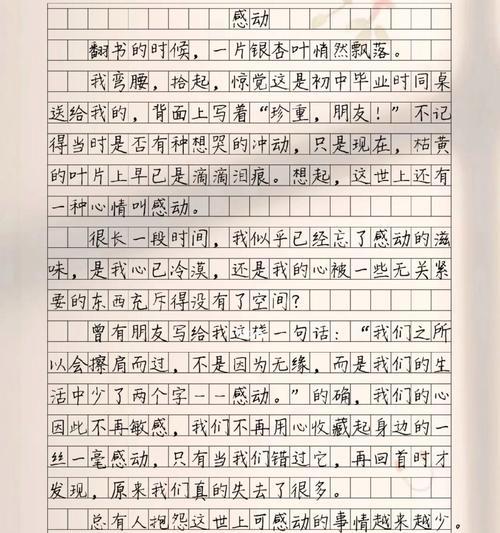 感动
翻书的时候，一片银杏叶悄然飘落。
我弯腰，拾起，惊觉这是初中毕业时同桌
送给我的，背面上写着“珍重，朋友！”不记
得当时是否有种想哭的冲动，只是现在，枯黄
的叶片上早已是滴滴泪痕。想起，这世上还有
一种心情叫感动。
很长一段时间，我似乎已经忘了感动的滋
味，是我心已冷漠，还是我的心被一些无关紧
要的东西充斥得没有了空间？
曾有朋友写给我这样一句话：“我们之所
以会擦肩而过，不是因为无缘，而是我们的生
活中少了两个字——感动。”的确，我们的心
因此不再敏感，我们不再用心收藏起身边的一
丝一毫感动，只有当我们错过它，再回首时才
发现，原来我们真的失去了很多。
总有人抱怨这世上可感动的事情越来越少。